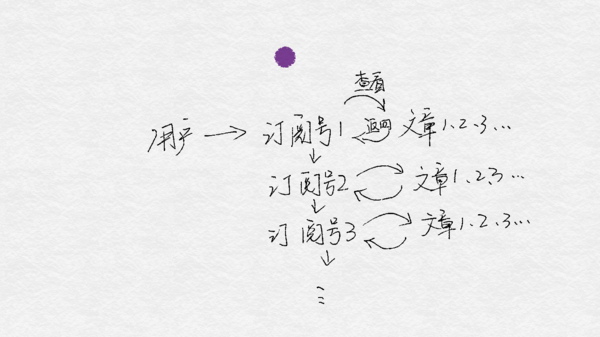 查看
用户 → 订阅号1 返回 文章1、2、3...
↓
订阅号2 文章1、2、3...
↓
订阅号3 文章1、2、3...
↓